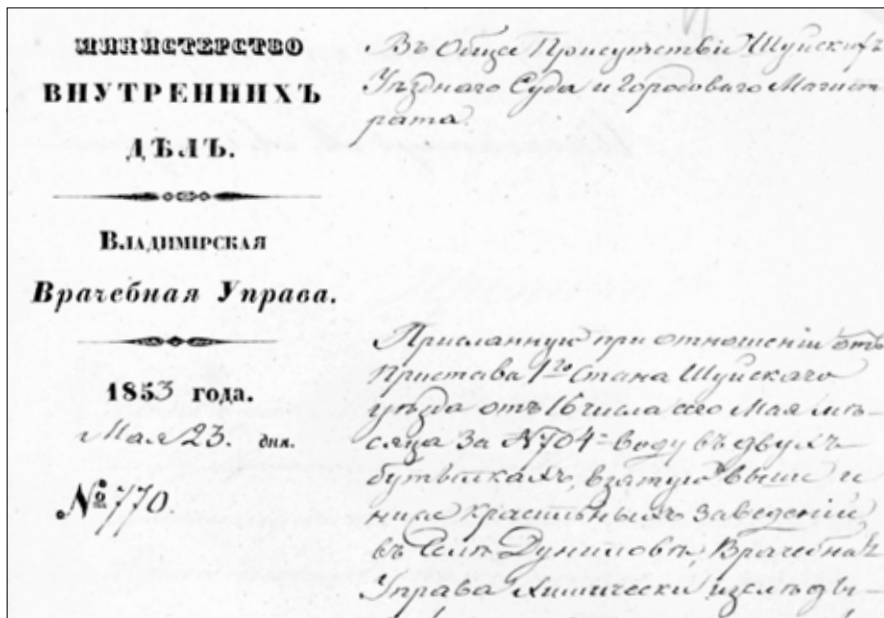 МИНИСТЕРСТВО
ВНУТРЕННИХЪ
ДѢЛЪ.
ВЛАДИМІРСКАЯ
Врачебная Управа.
1853 года.
Мая 23. дня.
№ 770.
Въ Общее Присутствіе Шуйскихъ
Уѣзднаго Суда и Городоваго Магист
рата.
Присланную при отношеніи отъ
Пристава 1го Стана Шуйскаго
уѣзда отъ 16 числа сего Мая мѣ-
сяца за №704= воду въ двухъ
бутылкахъ, взятую выше и
ниже красильныхъ заведеній
въ Селѣ Дуниловѣ, Врачебная
Управа Химически изслѣды-